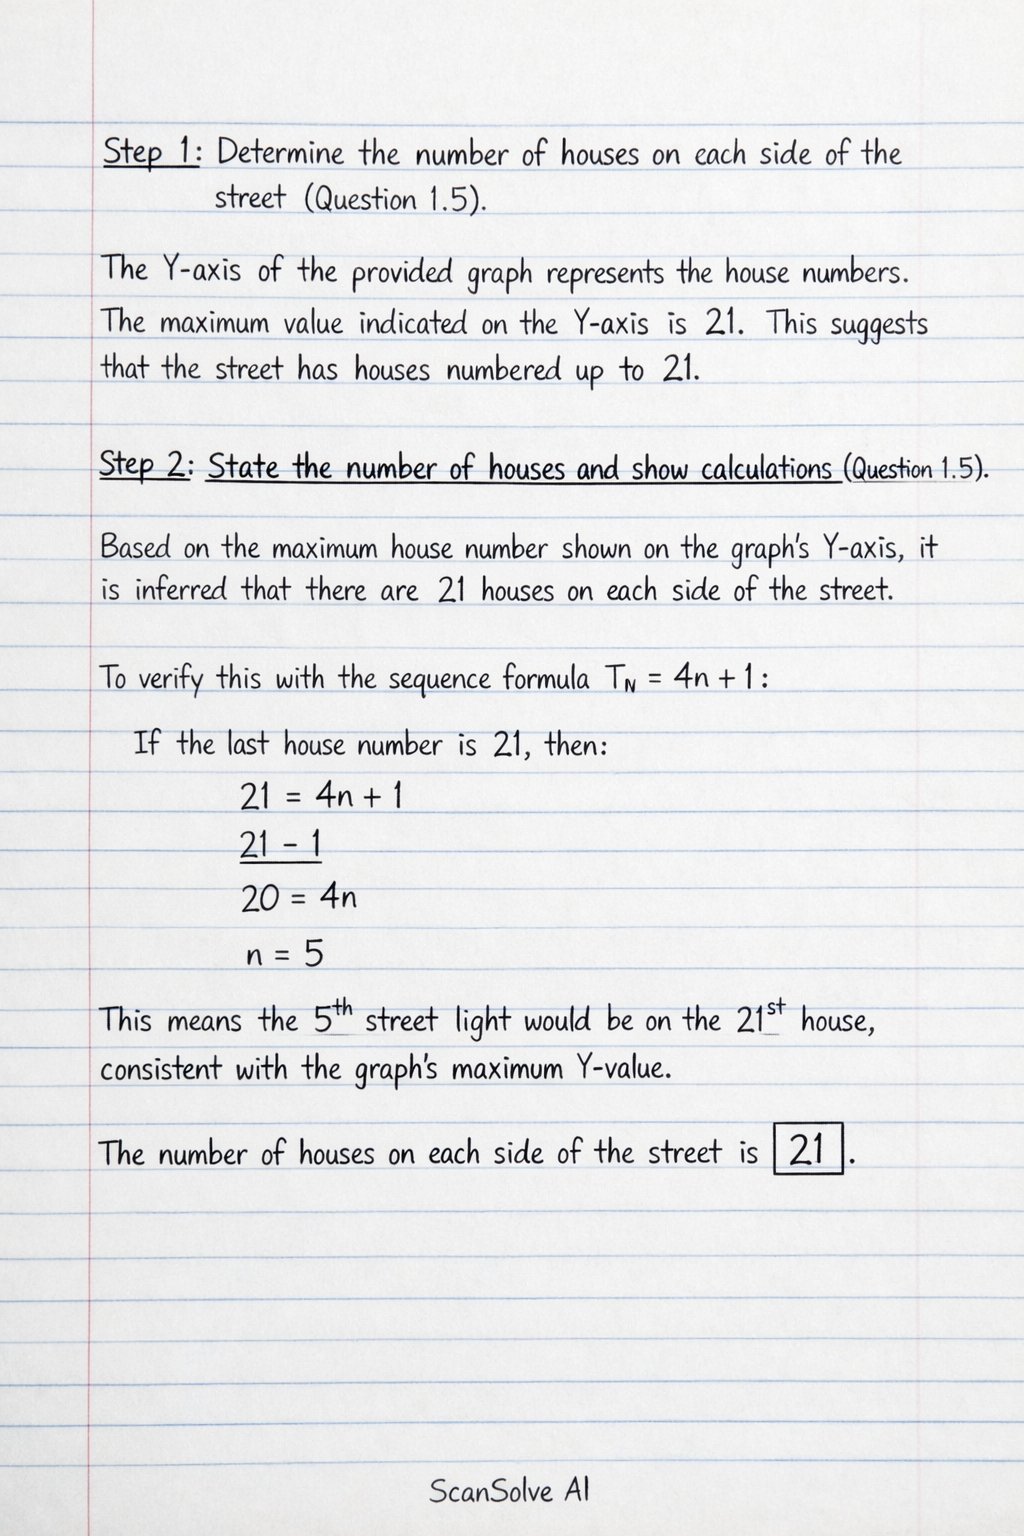 Step 1: Determine the number of houses on each side of the
street (Question 1.5).
The Y-axis of the provided graph represents the house numbers.
The maximum value indicated on the Y-axis is 21. This suggests
that the street has houses numbered up to 21.
Step 2: State the number of houses and show calculations (Question 1.5).
Based on the maximum house number shown on the graph's Y-axis, it
is inferred that there are 21 houses on each side of the street.
To verify this with the sequence formula T_N = 4n + 1:
If the last house number is 21, then:
21 = 4n + 1
21 - 1
20 = 4n
n = 5
This means the 5th street light would be on the 21st house,
consistent with the graph's maximum Y-value.
The number of houses on each side of the street is 21.
ScanSolve AI